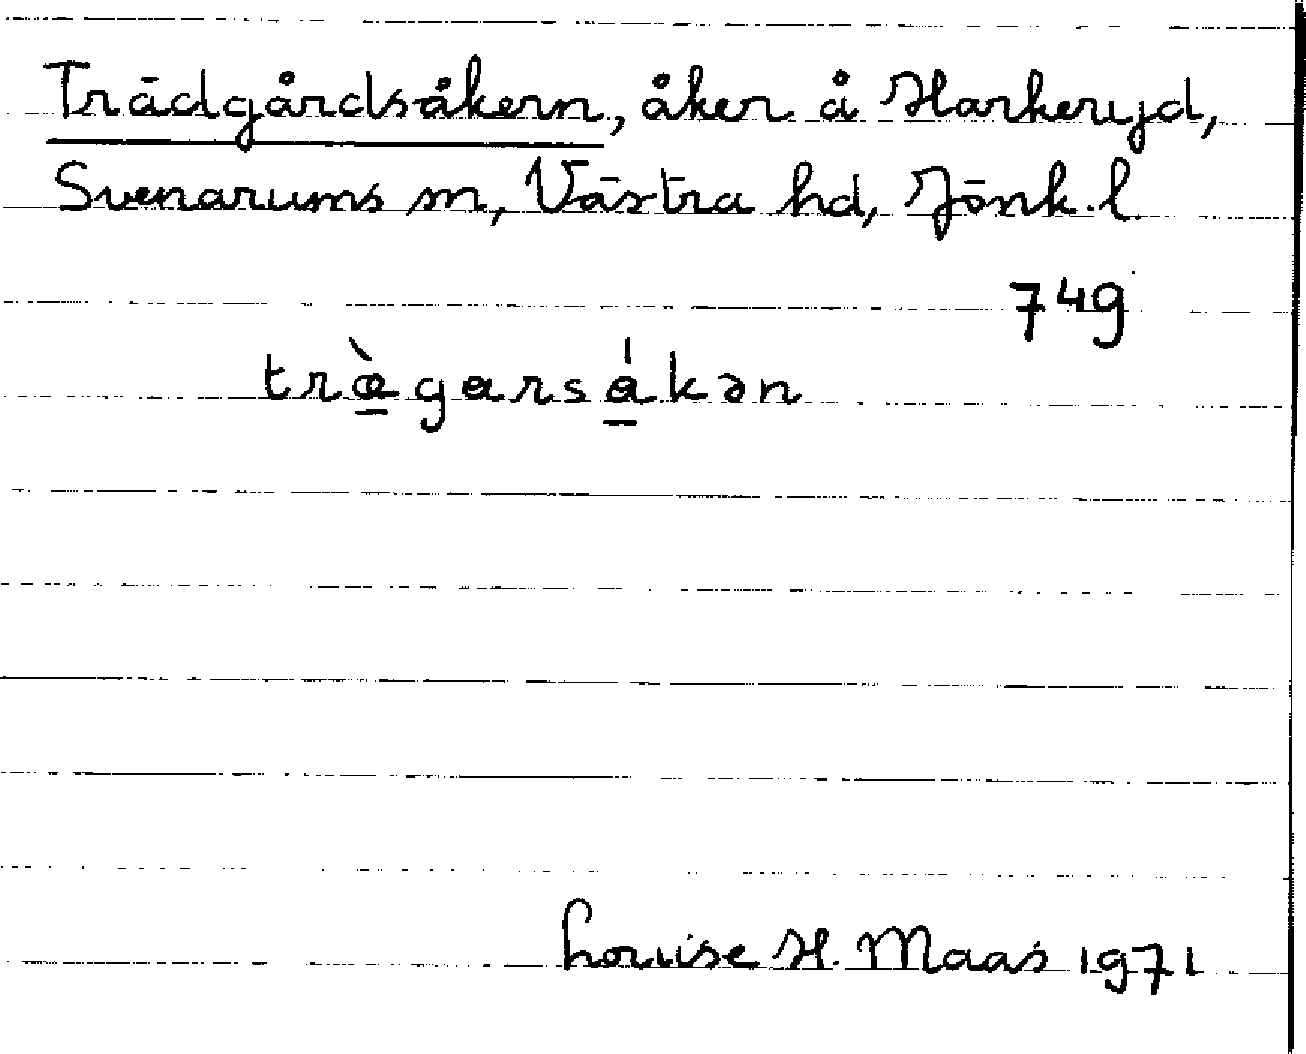 Trädgårdsåkern, åker å Harkeryd,
Svenarums sn, Västra hd, Jönk. l.
749
træ̀garsákən
Louise H. Maas 1971